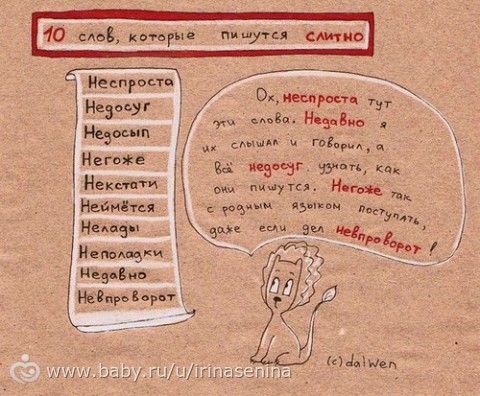 10 слов, которые пишутся слитно
Неспроста
Недосуг
Недосып
Негоже
Некстати
Неймётся
Нелады
Неполадки
Недавно
Невпроворот
Ох, неспроста тут
эти слова. Недавно я
их слышал и говорил, а
всё недосуг узнать, как
они пишутся. Негоже так
с родным языком поступать,
даже если дел невпроворот!
(c) dalwen
www.baby.ru/u/irinasenina